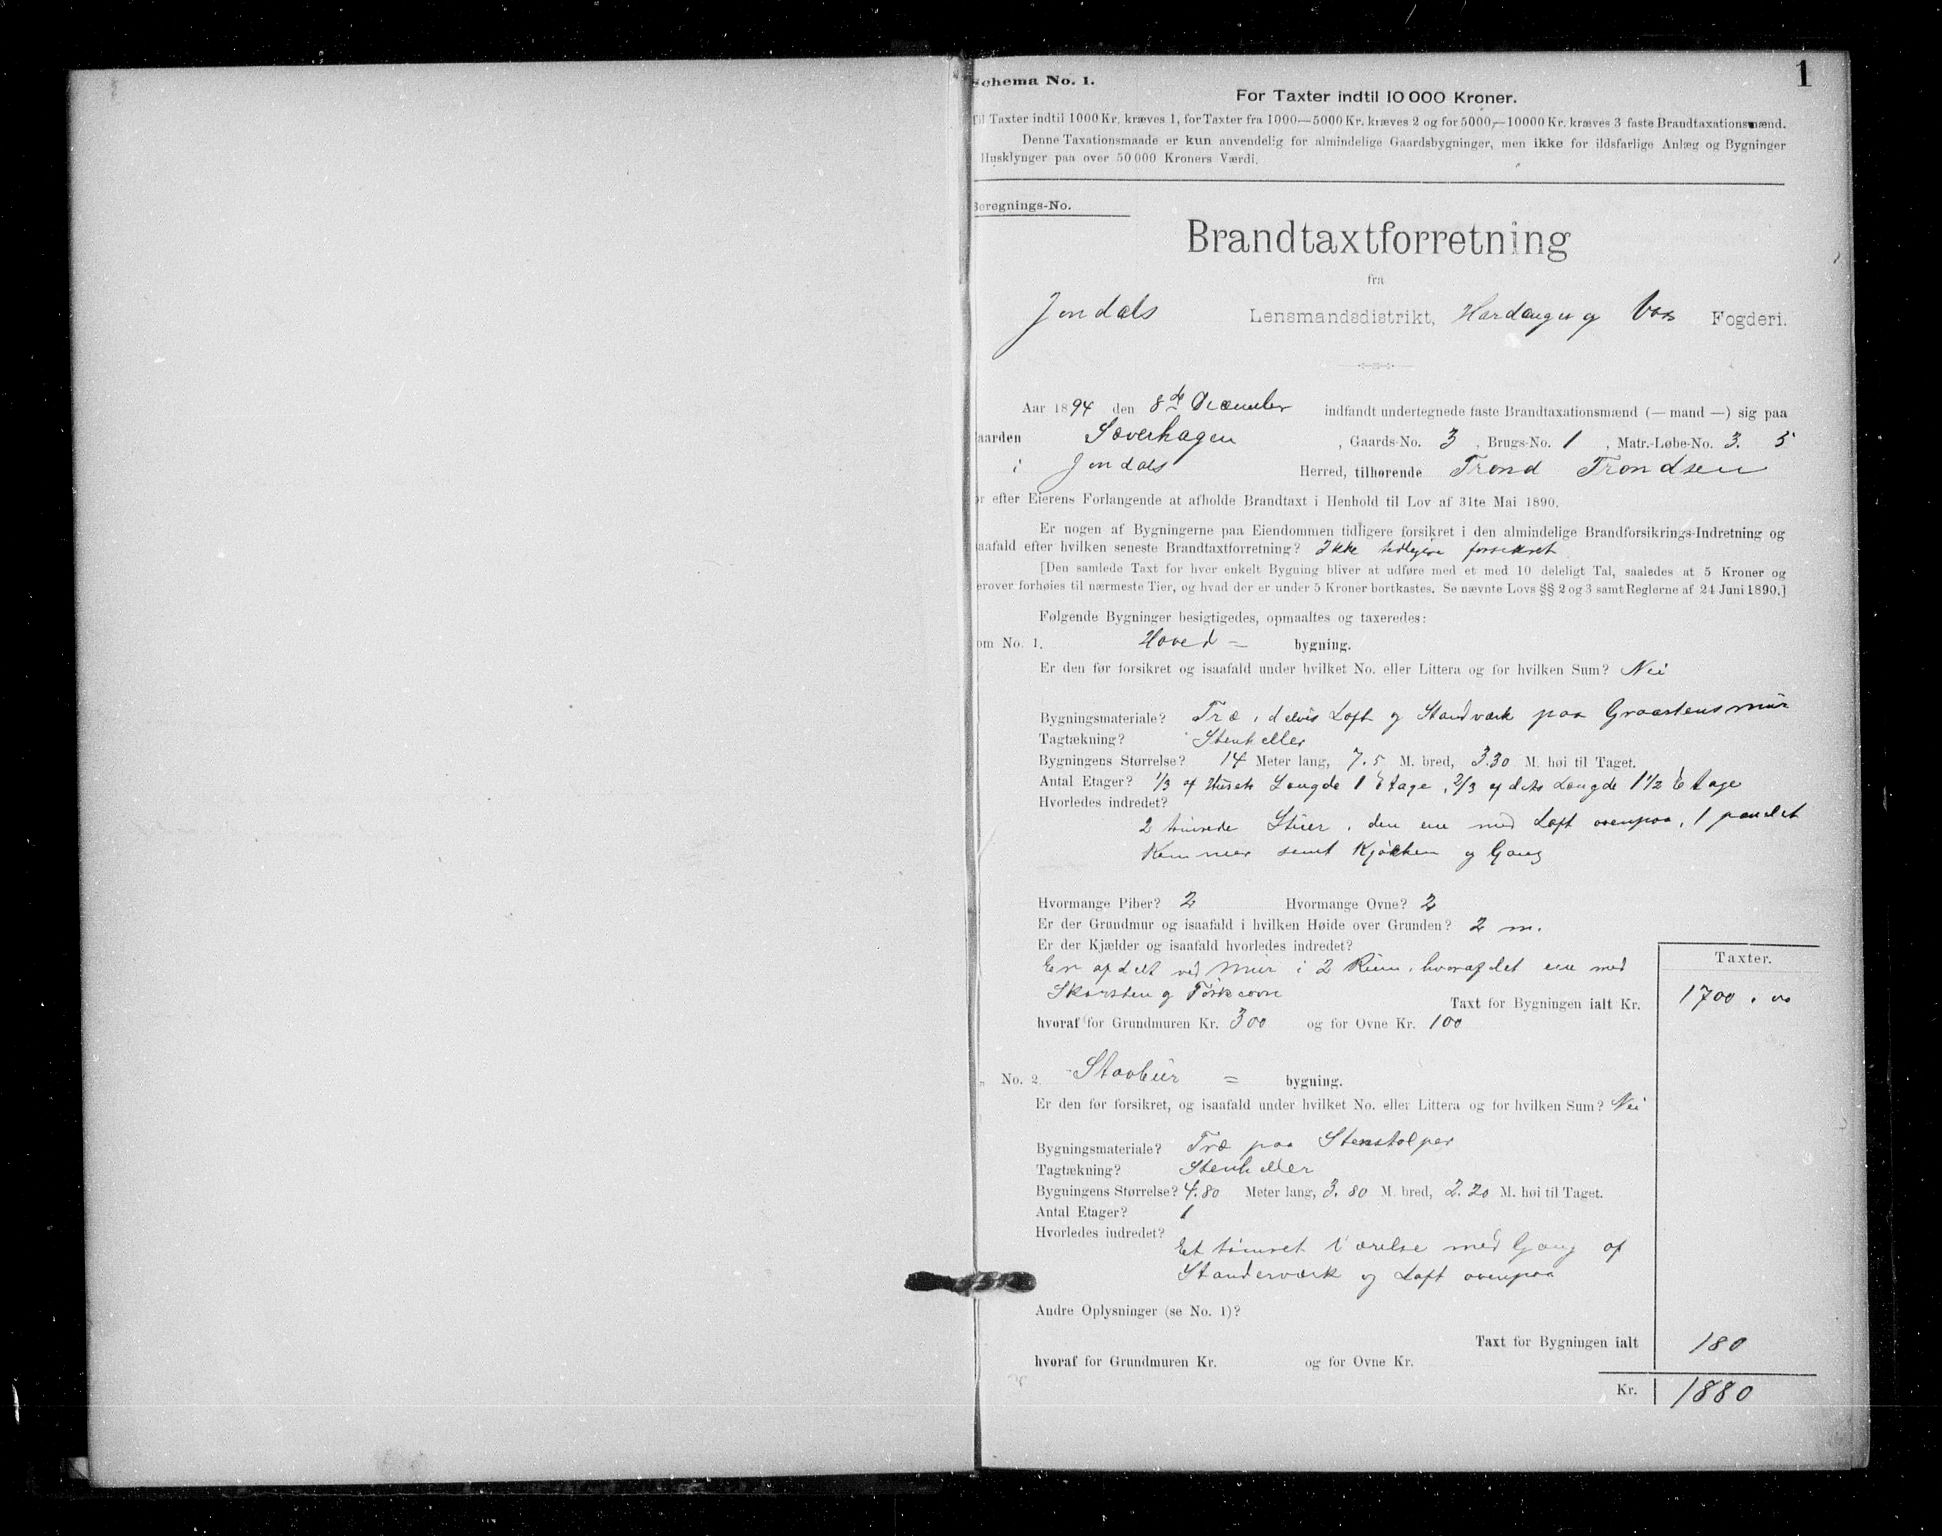 1
Schema No. 1.
For Taxter indtil 10 000 Kroner.
Til Taxter indtil 1000 Kr. kræves 1, for Taxter fra 1000—5000 Kr. kræves 2 og for 5000—10000 Kr. kræves 3 faste Brandtaxationsmænd.
Denne Taxationsmaade er kun anvendelig for almindelige Gaardsbygninger, men ikke for ildsfarlige Anlæg og Bygninger
Husklynger paa over 50 000 Kroners Værdi.
Beregnings-No.
Brandtaxtforretning
fra
Jondals Lensmandsdistrikt, Hardanger og Vos Fogderi.
Aar 1894 den 8de December indfandt undertegnede faste Brandtaxationsmænd (— mand —) sig paa
aarden Sæverhagen , Gaards-No. 3 , Brugs-No. 1 , Matr.-Løbe-No. 3. 5
i Jondals Herred, tilhørende Trond Trondsen
or efter Eierens Forlangende at afholde Brandtaxt i Henhold til Lov af 31te Mai 1890.
Er nogen af Bygningerne paa Eiendommen tidligere forsikret i den almindelige Brandforsikrings-Indretning og
aafald efter hvilken seneste Brandtaxtforretning? Ikke tidligere forsikret
[Den samlede Taxt for hver enkelt Bygning bliver at udføre med et med 10 deleligt Tal, saaledes at 5 Kroner og
erover forhøies til nærmeste Tier, og hvad der er under 5 Kroner bortkastes. Se nævnte Lovs §§ 2 og 3 samt Reglerne af 24 Juni 1890.]
Følgende Bygninger besigtigedes, opmaaltes og taxeredes:
om No. 1. Hoved = bygning.
Er den før forsikret og isaafald under hvilket No. eller Littera og for hvilken Sum? Nei
Bygningsmateriale? Træ, delvis Loft og Standværk paa Graastensmur
Tagtækning? Stenheller
Bygningens Størrelse? 14 Meter lang, 7.5 M. bred, 3.30 M. høi til Taget.
Antal Etager? 1/3 af Husets Længde 1 Etage, 2/3 af dets Længde 1 1/2 Etage
Hvorledes indredet?
2 tømrede Stuer, den ene med Loft ovenpaa, 1 panelet
Kammer samt Kjøkken og Gang
Hvormange Piber? 2 Hvormange Ovne? 2
Er der Grundmur og isaafald i hvilken Høide over Grunden? 2 m.
Er der Kjælder og isaafald hvorledes indredet?
Taxter.
Er afdelt ved Mur i 2 Rum, hvoraf det ene med
Skorsten og
Taxt for Bygningen ialt Kr. 1700. 00
hvoraf for Grundmuren Kr. 300 og for Ovne Kr. 100
„ No. 2. Stavbur = bygning.
Er den før forsikret, og isaafald under hvilket No. eller Littera og for hvilken Sum? Nei
Bygningsmateriale? Træ paa Stenstolper
Tagtækning? Stenheller
Bygningens Størrelse? 4.80 Meter lang, 3.80 M. bred, 2.20 M. høi til Taget.
Antal Etager? 1
Hvorledes indredet?
Et tømret Værelse med Gang af
Standerværk og Loft ovenpaa
Andre Oplysninger (se No. 1)?
Taxt for Bygningen ialt 180
hvoraf for Grundmuren Kr. og for Ovne Kr.
Kr. 1880